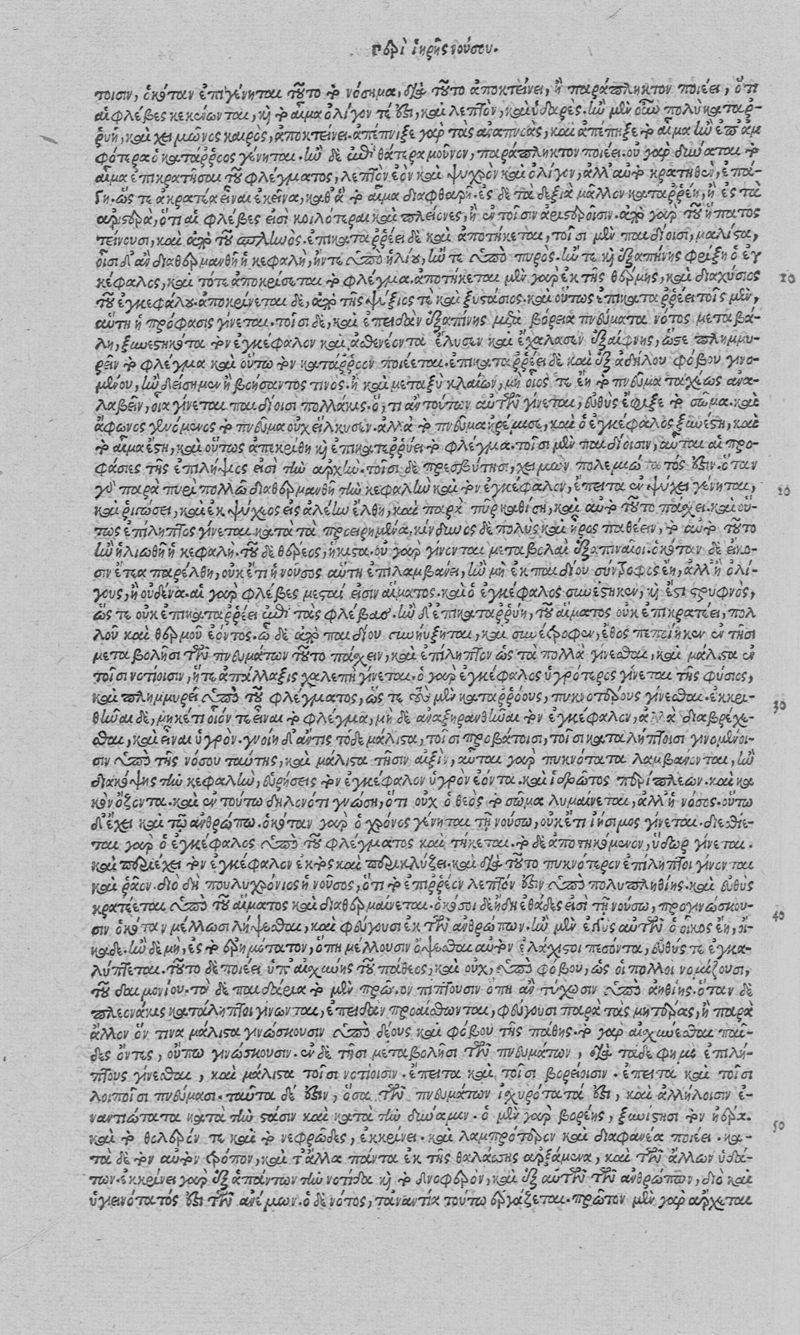 περὶ ἱερῆς νούσου.
τοισιν, ὁκόταν ἐπιγένηται τοῦτο τὸ νόσημα, διὰ τοῦτο ἀποκτείνει, ἢ παράπληκτον ποιέει, ὅτι
αἱ φλέβες κεκένωνται, καὶ τὸ αἷμα ὀλίγον τέ ἐστι, καὶ λεπτὸν, καὶ ὑδαρές. ἢν μὲν οὕτω πολὺ καταρ-
ρυῇ, καὶ χειμῶνος καιρὸς, ἀποκτείνει. ἀπέπνιξε γὰρ τὰς ἀναπνοὰς, καὶ ἀπέπηξε τὸ αἷμα ἢν ἐπ' ἀμ
φότερα ὁ κατάρροος γένηται. ἢν δὲ ἐπὶ θάτερα μοῦνον, παράπληκτον ποιέει. οὐ γὰρ δύναται τὸ
αἷμα ἐπικρατῆσαι τοῦ φλέγματος, λεπτὸν ἐὸν καὶ ψυχρὸν καὶ ὀλίγον, ἀλλ' αὐτὸ κρατηθὲν, ἐπά-
γη, ὥς τε ἀκρατέα εἶναι ἐκεῖνα, καθ' ἃ τὸ αἷμα διαφθαρῇ. ἐς δὲ τὰ δεξιὰ μᾶλλον καταρρέει, ἢ ἐς τὰ
ἀριστερὰ, ὅτι αἱ φλέβες εἰσὶ κοιλότεραι καὶ πλείονες, ἢ ἐν τοῖσιν ἀριστεροῖσιν. ἀπὸ γὰρ τοῦ ἥπατος
τείνουσι, καὶ ἀπὸ τοῦ σπληνός. ἐπικαταρρέει δὲ καὶ ἀποτήκεται, τοῖσι μὲν παιδίοισι, μάλιστα,
οἷσι δ' ἂν διαθερμανθῇ ἡ κεφαλὴ, ἤν τε ὑπὸ ἡλίου, ἤν τε ὑπὸ πυρός. ἤν τε καὶ ἐξαπίνης φρίξῃ ὁ ἐγ
κέφαλος, καὶ τότε ἀποκρίσεται τὸ φλέγμα. ἀποτήκεται μὲν γὰρ ἐκ τῆς θέρμης, καὶ διαχύσιος
10
τοῦ ἐγκεφάλου. ἀποκρίνεται δὲ, ἀπὸ τῆς ψύξιός τε καὶ ξυστάσιος. καὶ οὕτως ἐπικαταρρέει τοῖς μὲν,
αὕτη ἡ πρόφασις γίνεται. τοῖσι δὲ, καὶ ἐπειδὰν ἐξαπίνης μετὰ βόρεια πνεύματα νότος μεταβά-
λῃ, ξυνεστηκότα τὸν ἐγκέφαλον καὶ ἀσθενέοντα ἔλυσεν καὶ ἐχάλασεν ἐξαίφνης, ὥστε πλημμυ-
ρεῖν τὸ φλέγμα καὶ οὕτω τὸν κατάρροον ποιέεται. ἐπικαταρρέει δὲ καὶ ἐξ ἀδήλου φόβου γινο-
μένου, ἢν δείσῃ μὲν ἢ βοήσαντός τινος. ἢ καὶ μεταξὺ κλαίων, μὴ οἷός τε ἔῃ τὸ πνεῦμα ταχέως ἀνα-
λαβεῖν, οἷα γίνεται παιδίοισι πολλάκις. ὅ, τι ἂν τούτων αὐτῶν γίνεται, εὐθὺς ἔφριξε τὸ σῶμα. καὶ
ἄφωνος γενόμενος τὸ πνεῦμα οὐχ εἵλκυσεν. ἀλλὰ τὸ πνεῦμα ἠρέμισε, καὶ ὁ ἐγκέφαλος ξυνέστη, καὶ
τὸ αἷμα ἔστη, καὶ οὕτως ἀπεκρίθη καὶ ἐπικατερρύει τὸ φλέγμα. τοῖσι μὲν παιδίοισιν, αὗται αἱ προ-
φάσιες τῆς ἐπιλήψιός εἰσι τὴν ἀρχήν. τοῖσι δὲ πρεσβύτῃσι, χειμὼν πολεμιώτατός ἐστιν. ὅταν
γὰρ παρὰ πυρὶ πολλῷ διαθερμανθῇ τὴν κεφαλὴν καὶ τὸν ἐγκέφαλον, ἔπειτα ἐν ψύχει γένηται,
20
καὶ ῥιγώσει, καὶ ἐκ ψύχεος εἰς ἀλέην ἔλθῃ, καὶ παρὰ πῦρ καθίσῃ, καὶ αὐτὸ τοῦτο πάσχει. καὶ οὕ-
τως ἐπίληπτος γίνεται κατὰ τὰ προειρημένα. κίνδυνος δὲ πολὺς καὶ ἦρος παθέειν, τὸ αὐτὸ τοῦτο
ἢν ἡλιωθῇ ἡ κεφαλή. τοῦ δὲ θέρεος, ἥκιστα. οὐ γὰρ γίνονται μεταβολαὶ ἐξαπιναῖοι. ὁκόταν δὲ εἴκο-
σιν ἔτεα παρέλθῃ, οὐκ ἔτι ἡ νοῦσος αὕτη ἐπιλαμβάνει, ἢν μὴ ἐκ παιδίου σύντροφος ἔῃ, ἀλλ' ἢ ὀλί-
γους, ἢ οὐδένα. αἱ γὰρ φλέβες μεσταί εἰσιν αἵματος. καὶ ὁ ἐγκέφαλος συνέστηκεν, καὶ ἔστι στρυφνὸς,
ὥς τε οὐκ ἐπικαταρρέει ἐπὶ τὰς φλέβας. ἢν δ' ἐπικαταρρυῇ, τοῦ αἵματος οὐκ ἐπικρατέει, πολ
λοῦ καὶ θερμοῦ ἐόντος. ᾧ δὲ ἀπὸ παιδίου συνηύξηται, καὶ συντέτροφεν, ἔθος πεποίηκεν ἐν τῇσι
μεταβολῇσι τῶν πνευμάτων τοῦτο πάσχειν, καὶ ἐπίληπτον ὡς τὰ πολλὰ γίνεσθαι, καὶ μάλιστα ἐν
τοῖσι νοτίοισιν, ἥ τε ἀπάλλαξις χαλεπὴ γίνεται. ὁ γὰρ ἐγκέφαλος ὑγρότερος γίνεται τῆς φύσιος,
καὶ πλημμυρεῖ ὑπὸ τοῦ φλέγματος, ὥς τε τοὺς μὲν καταρρόους, πυκνοτέρους γίνεσθαι. ἐκκρι-
30
θῆναι δὲ, μηκέτι οἷόν τε εἶναι τὸ φλέγμα, μὴ δὲ ἀναξηρανθῆναι τὸν ἐγκέφαλον, ἀλλὰ διαβρέχε-
σθαι, καὶ εἶναι ὑγρόν. γνοίη δ' ἄν τις τόδε μάλιστα, τοῖσι προβάτοισι, τοῖσι καταλήπτοισι γινομένοι-
σιν ὑπὸ τῆς νόσου ταύτης, καὶ μάλιστα τῇσιν αἰξὶν, αὗται γὰρ πυκνότατα λαμβάνονται, ἢν
διακόψῃς τὴν κεφαλὴν, εὑρήσεις τὸν ἐγκέφαλον ὑγρὸν ἐόντα. καὶ ἱδρῶτος περίπλεων. καὶ κα
κὸν ὄζοντα. καὶ ἐν τούτῳ δηλονότι γνώσῃ, ὅτι οὐχ ὁ θεὸς τὸ σῶμα λυμαίνεται, ἀλλ' ἡ νόσος. οὕτω
δ' ἔχει καὶ τῷ ἀνθρώπῳ. ὁκόταν γὰρ ὁ χρόνος γένηται τῇ νούσῳ, οὐκ ἔτι ἰήσιμος γίνεται. διεσθίε-
ται γὰρ ὁ ἐγκέφαλος ὑπὸ τοῦ φλέγματος καὶ τήκεται. τὸ δὲ ἀποτηκόμενον, ὕδωρ γίνεται.
καὶ περιέχει τὸν ἐγκέφαλον ἐκτὸς καὶ περικλύζει. καὶ διὰ τοῦτο πυκνότερον ἐπίληπτοι γίνονται
καὶ ῥᾷον. διὸ δὴ πουλυχρόνιος ἡ νοῦσος, ὅτι τὸ ἐπιρρέον λεπτόν ἐστιν ὑπὸ πολυπληθίης. καὶ εὐθὺς
κρατέεται ὑπὸ τοῦ αἵματος καὶ διαθερμαίνεται. ὁκόσοι δὲ ἤδη ἐθάδες εἰσὶ τῇ νούσῳ, προγινώσκου-
σιν ὁκόταν μέλλωσι λήψεσθαι, καὶ φεύγουσι ἐκ τῶν ἀνθρώπων. ἢν μὲν ἐγγὺς αὐτῶν ὁ οἶκος ἔῃ, οἴ-
40
καδε. ἢν δὲ μὴ, ἐς τὸ ἐρημότατον, ὅπη μέλλουσιν ὄψεσθαι αὐτὸν ἐλάχιστοι πεσόντα, εὐθύς τε ἐγκα-
λύπτεται. τοῦτο δὲ ποιέει ὑπ' αἰσχύνης τοῦ πάθεος, καὶ οὐχ, ὑπὸ φόβου, ὡς οἱ πολλοὶ νομίζουσι,
τοῦ δαιμονίου. τὰ δὲ παιδάρια τὸ μὲν πρῶτον πίπτουσιν ὅπη ἂν τύχωσιν ὑπὸ ἀηθίης. ὅταν δὲ
πλεονάκις κατάληπτοι γίνωνται, ἐπειδὰν προαίσθωνται, φεύγουσι παρὰ τὰς μητέρας, ἢ παρὰ
ἄλλον ὅν τινα μάλιστα γινώσκουσιν ὑπὸ δέους καὶ φόβου τῆς πάθης. τὸ γὰρ αἰσχύνεσθαι παῖ-
δες ὄντες, οὔπω γινώσκουσιν. ἐν δὲ τῇσι μεταβολῇσι τῶν πνευμάτων, διὰ τάδε φημὶ ἐπιλή-
πτους γίνεσθαι, καὶ μάλιστα τοῖσι νοτίοισιν. ἔπειτα καὶ τοῖσι βορείοισιν. ἔπειτα καὶ τοῖσι
λοιποῖσι πνεύμασι. ταῦτα δέ ἐστιν, ὅσα τῶν πνευμάτων ἰσχυρότατά ἐστι, καὶ ἀλλήλοισιν ἐ-
ναντιώτατα κατὰ τὴν στάσιν καὶ κατὰ τὴν δύναμιν. ὁ μὲν γὰρ βορέης, ξυνίστησι τὸν ἠέρα.
καὶ τὸ θολερόν τε καὶ τὸ νεφρῶδες, ἐκκρίνει. καὶ λαμπρότερον καὶ διαφανέα ποιέει. κα-
50
τὰ δὲ τὸν αὐτὸν τρόπον, καὶ τἄλλα πάντα ἐκ τῆς θαλάσσης ἀρξάμενα, καὶ τῶν ἄλλων ὑδά-
των. ἐκκρίνει γὰρ ἐξ ἁπάντων τὴν νοτίδα καὶ τὸ δνοφερὸν, καὶ ἐξ αὐτῶν τῶν ἀνθρώπων, διὸ καὶ
ὑγιεινότατός ἐστι τῶν ἀνέμων. ὁ δὲ νότος, τἀναντία τούτῳ ἐργάζεται. πρῶτον μὲν γὰρ ἄρχεται